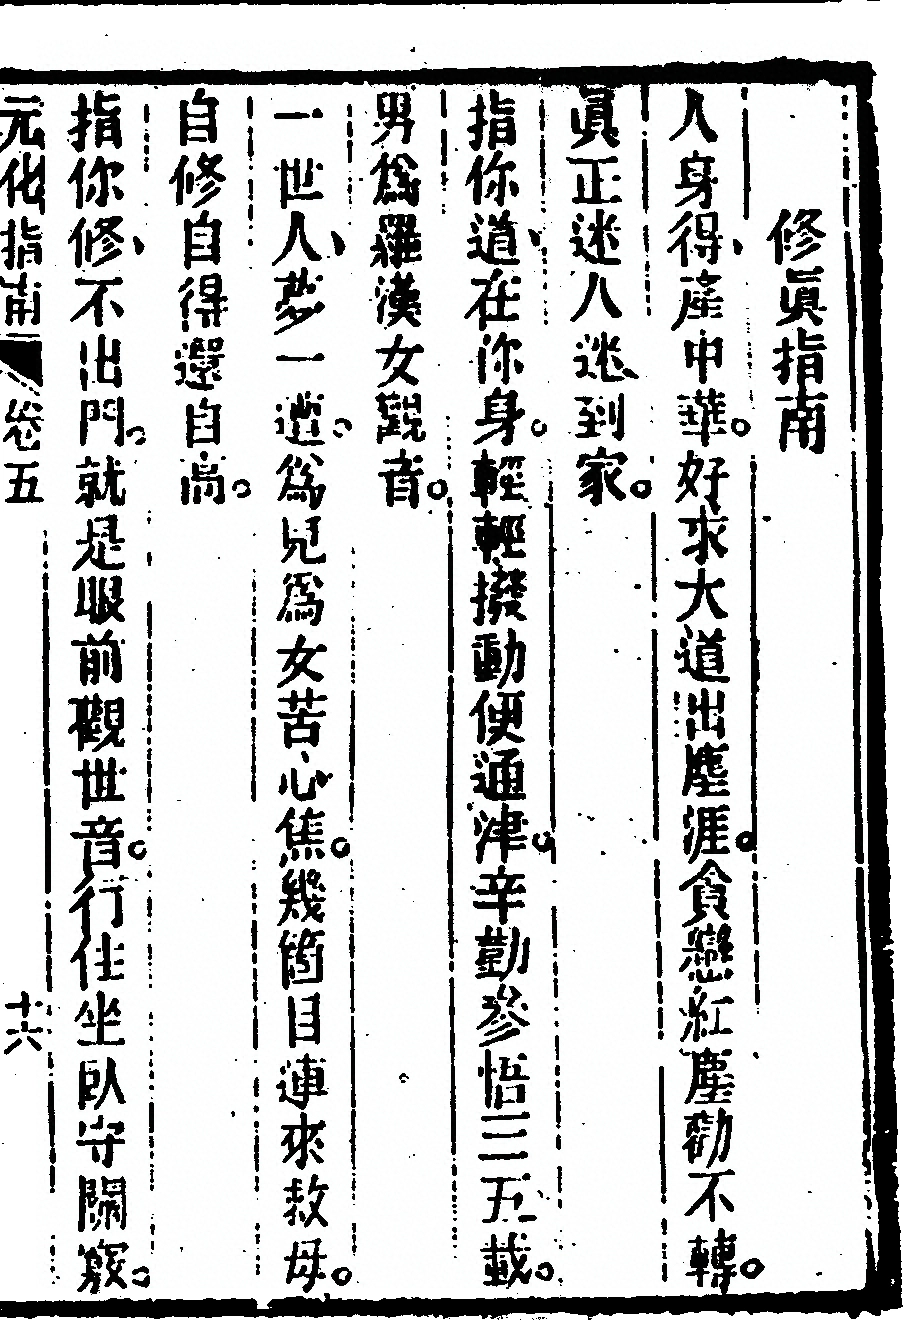 修眞指南
人身得產中華。好求大道出塵涯。貪戀紅塵勸不轉。
眞正迷人迷到家。
指你道在你身。輕輕撥動便通津。辛勤參悟三五載。
男爲羅漢女觀音。
一世人夢一遭。爲兒爲女苦心焦。幾箇目連來救母。
自修自得還自高。
指你修不出門。就是眼前觀世音。行住坐臥守關竅。
元化指南 卷五 十六